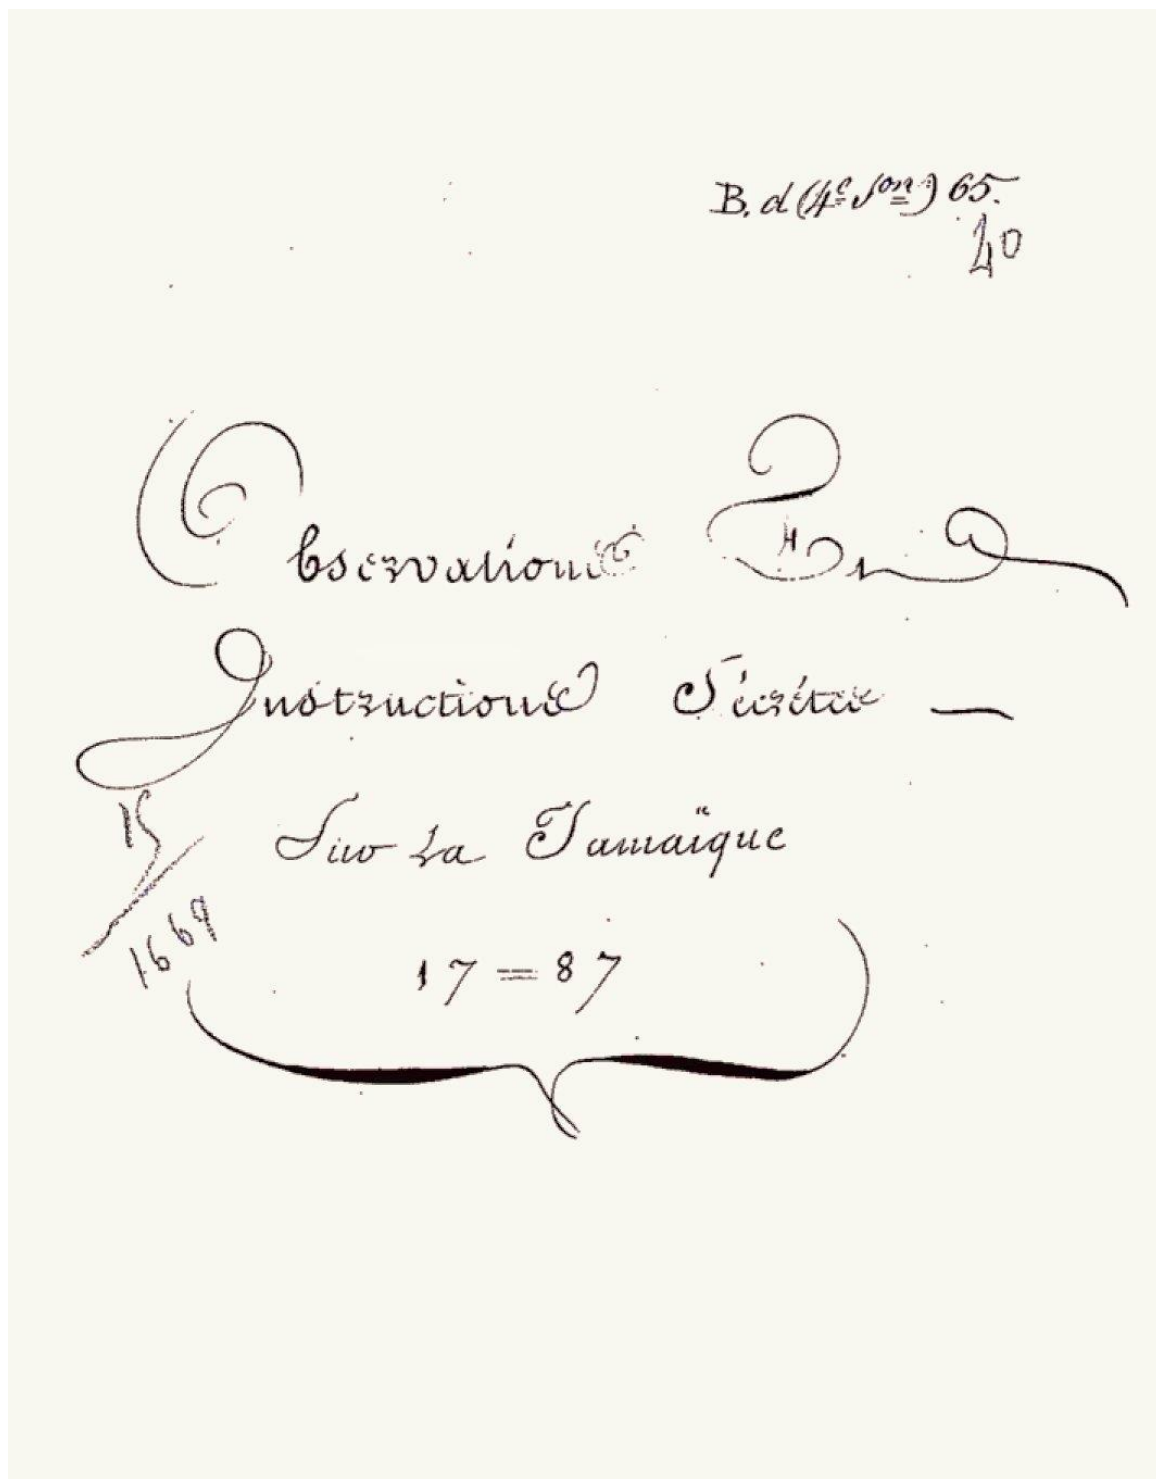 B. d (4e Son) 65.
40
Observations Et
Instructions Sécrétes —
Sur La Jamaïque
15
1669
17=87